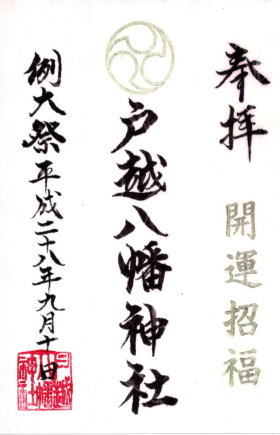 奉拝
開運招福
戸越八幡神社
例大祭
平成二十八年九月十日